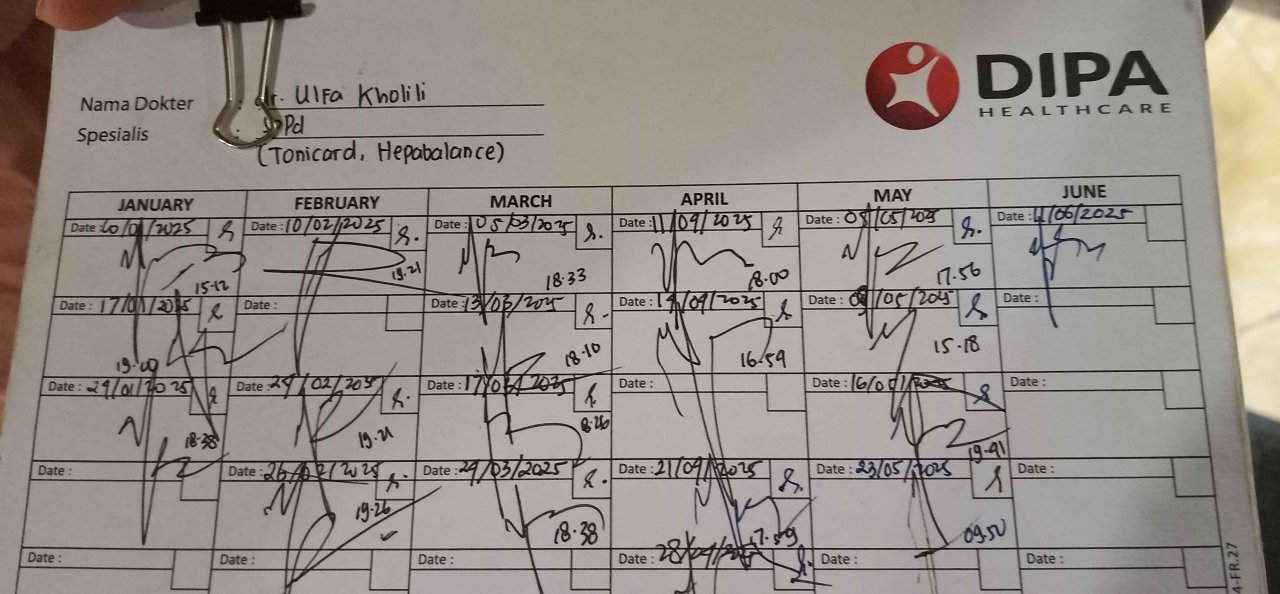 DIPA
HEALTHCARE
Nama Dokter : dr. Ulfa Kholili
Spesialis : SpPd
(Tonicard, Hepabalance)
JANUARY FEBRUARY MARCH APRIL MAY JUNE
Date : 10/02/2025 Date : 05/03/2025 Date : 11/04/2025 Date : 05/05/2025 Date : 11/06/2025
15-12 19.21 18.33 18.00 17.56
Date : 17/01/2025 Date : Date : 13/03/2025 Date : 14/04/2025 Date : Date :
19.00 18.10 16.59 15.18
Date : 24/01/2025 Date : 24/02/2025 Date : 17/03/2025 Date : Date : Date :
18-38 19.21 8.26 19.41
Date : Date : 26/02/2025 Date : 24/03/2025 Date : 21/04/2025 Date : 23/05/2025 Date :
19-26 18.38 17.59 09.50
Date : Date : Date : Date : 28/04/2025 Date : Date :
4-FR.27